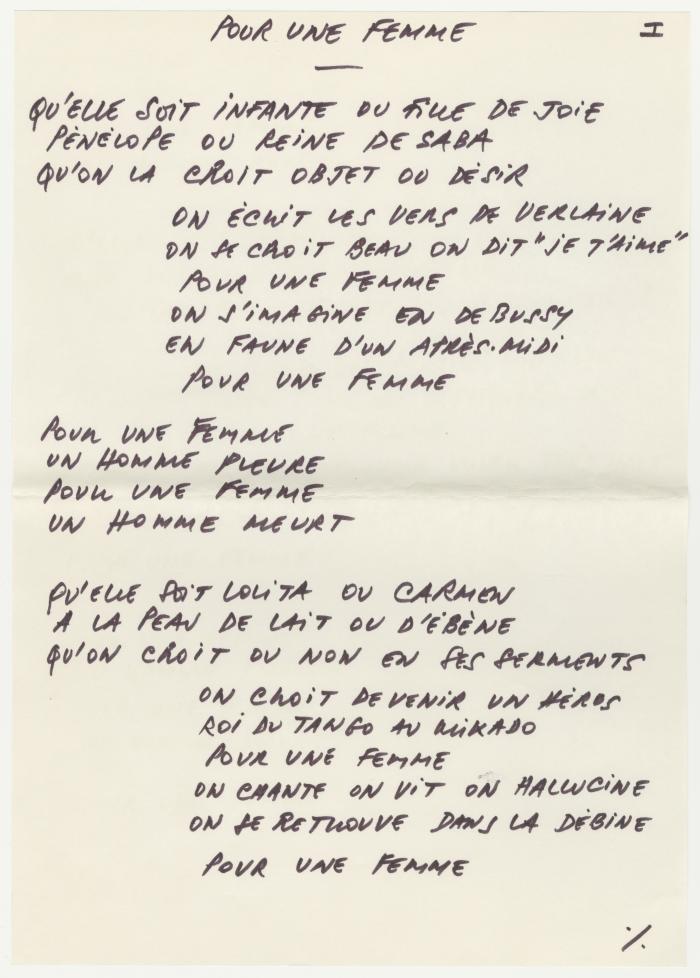 POUR UNE FEMME
I
QU'ELLE SOIT INFANTE OU FILLE DE JOIE
PÉNÉLOPE OU REINE DE SABA
QU'ON LA CROIT OBJET OU DÉSIR
ON ÉCRIT LES VERS DE VERLAINE
ON SE CROIT BEAU ON DIT "JE T'AIME"
POUR UNE FEMME
ON S'IMAGINE EN DEBUSSY
EN FAUNE D'UN APRÈS-MIDI
POUR UNE FEMME
POUR UNE FEMME
UN HOMME PLEURE
POUR UNE FEMME
UN HOMME MEURT
QU'ELLE SOIT LOLITA OU CARMEN
A LA PEAU DE LAIT OU D'ÉBÈNE
QU'ON CROIT OU NON EN SES SERMENTS
ON CROIT DEVENIR UN HÉROS
ROI DU TANGO AU MIKADO
POUR UNE FEMME
ON CHANTE ON VIT ON HALLUCINE
ON SE RETROUVE DANS LA DÉBINE
POUR UNE FEMME
./.